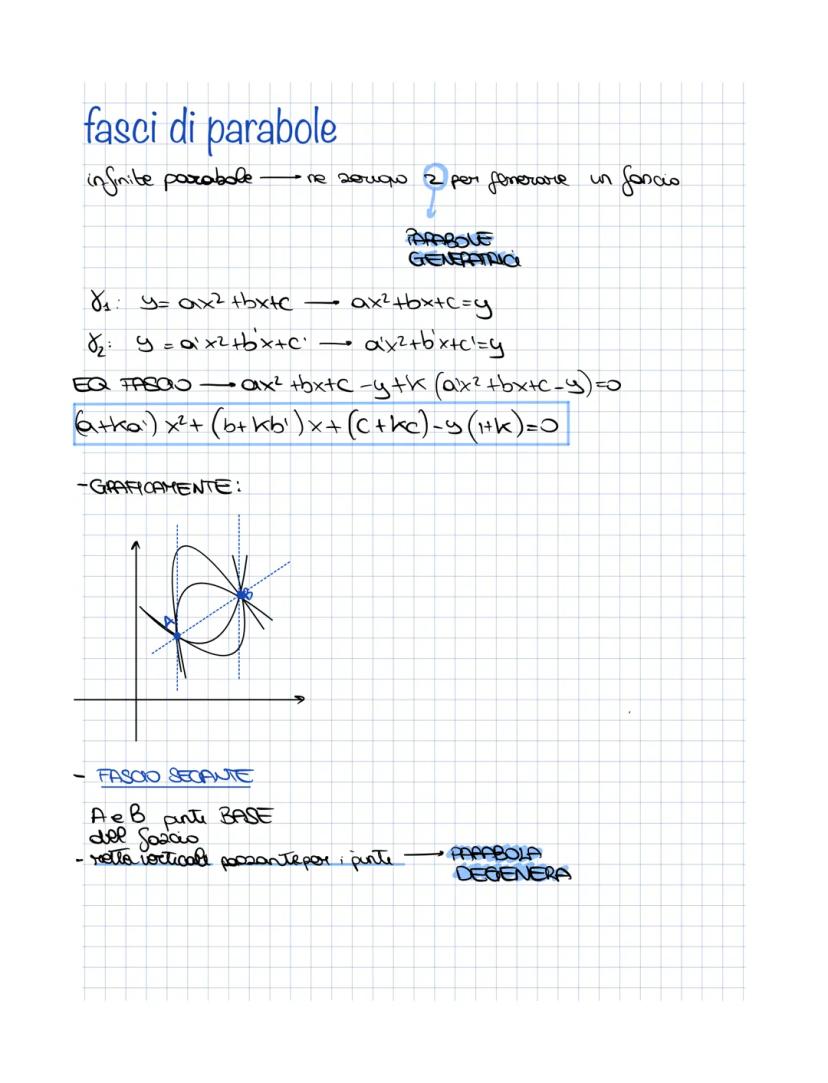 fasci di parabole
infinite parabole → ne servono 2 per generare un fascio
PARABOLE
GENERATRICI
γ₁: y = ax² + bx + c → ax² + bx + c = y
γ₂: y = a'x² + b'x + c' → a'x² + b'x + c' = y
EQ FASCIO → ax² + bx + c - y + k (a'x² + bx + c - y) = 0
(a+ka') x² + (b + kb') x + (c + kc) - y (1+k) = 0
- GRAFICAMENTE:
B
A
- FASCIO SECANTE
A e B punti BASE
del fascio
- retta verticale passante per i punti → PARABOLA
DEGENERA